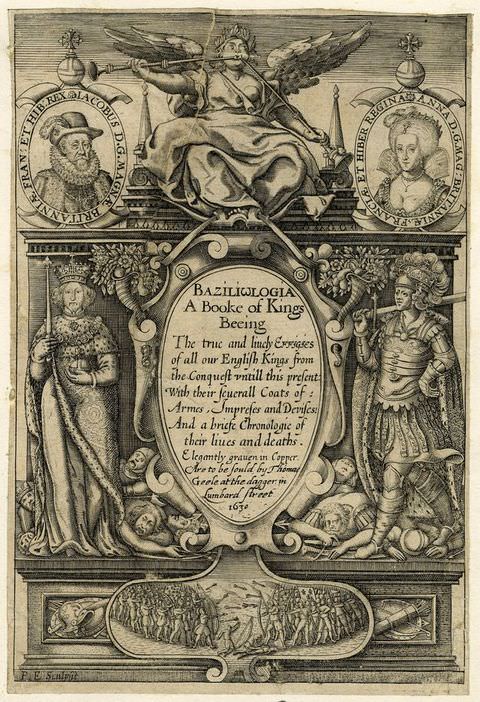 IACOBUS D.G. MAGNÆ BRITANNIÆ, FRAN: ET HIB: REX
ANNA D.G. MAG: BRITANNIÆ, FRANCIÆ ET HIBER REGINA
BAZILIωLOGIA
A Booke of Kings
Beeing
The true and liuely Effigies
of all our English Kings from
the Conquest vntill this present:
With their seuerall Coats of
Armes, Impreses and Deuises:
And a briefe Chronologie of
their liues and deaths.
Elegantly grauen in Copper.
Are to be sould by Thomas
Geele at the dagger in
Lumbard street
1630
P. E. Sculpsit